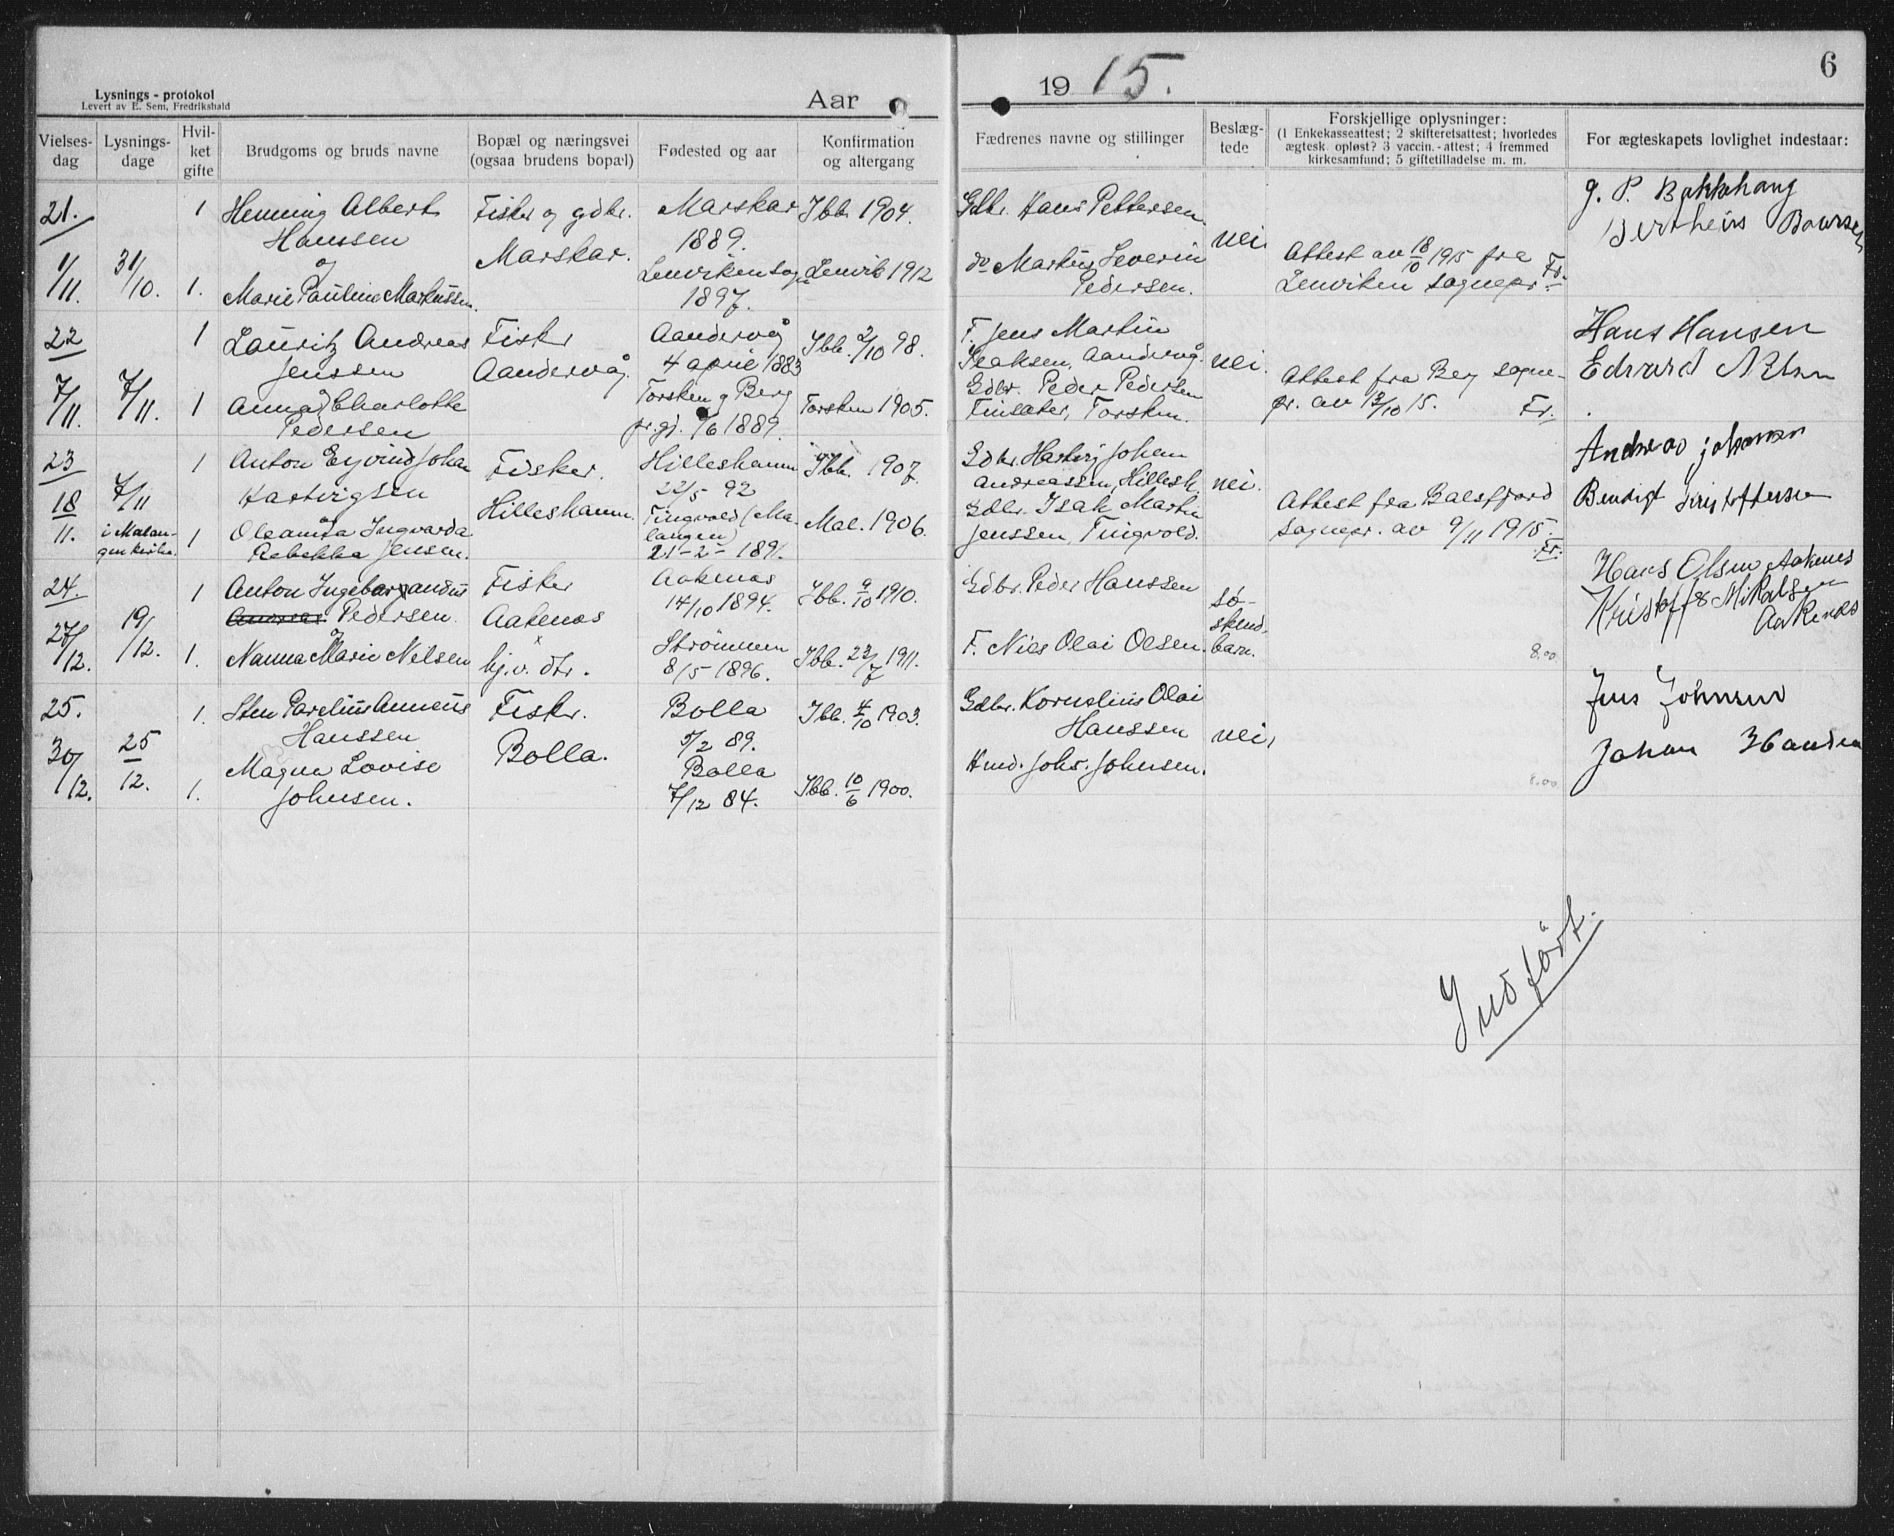 Lysnings - protokol
Levert av E. Sem, Fredrikshald
Aar
1915.
6
Vielses-dag
Lysnings-dage
Hvil-ket gifte
Brudgoms og bruds navne
Bopæl og næringsvei (ogsaa brudens bopæl)
Fødested og aar
Konfirmation og altergang
Fædrenes navne og stillinger
Beslæg-tede
Forskjellige oplysninger:
(1 Enkekasseattest; 2 skifteretsattest; hvorledes
ægtesk. opløst? 3 vaccin.-attest; 4 fremmed
kirkesamfund; 5 giftetilladelse m. m.
For ægteskapets lovlighet indestaar:
21. 1 Henning Albert Fisker og gdbr. Marskar Ibb. 1904. Gdbr. Hans Pettersen J. P. Bakkehaug
Hanssen Marskar. 1889. nei.
og
1/11. 31/10. 1. Marie Pauline Markussen Lenviken sogn 1897. Lenvik 1912 do Markus Severin Pedersen. Attest av 18/10 1915 fra
Lenviken sognepr. Fr.
22 1 Lauritz Andreas Fisker Aandervåg Ibb. 2/10 98. F. Jens Martin Hans Hansen
Jenssen Aandervåg. 4 april 1883 Isaksen, Aandervåg. nei. Edvard
7/11. 7/11. 1 Anna Charlotte Torsken og Berg Torsken 1905. Gdbr. Peder Pedersen Attest fra Berg sogne-
Pedersen pr.gj. 1/6 1889. Finsæter, Torsken. pr. av 13/10 15. Fr.
23 1 Anton Eyvind Johan Fisker. Hilleshamn Ibb. 1907. Gdbr. Hartvig Johan Andreas Johansen
18/11. 7/11 Hartvigsen Hilleshamn. 22/5 92 Andreassen, Hillesh. nei. Bendigt
i Malan-gen kirke. 1 Oleanna Ingvarda Tingvold (Ma-langen) Mal. 1906. Gdbr. Isak Martin Attest fra Balsfjord
Rebekka Jensen. 21-2-1891. Jenssen Tingvold. sognepr. av 9/11 1915. Fr.
24. 1 Anton Ingebor Fisker Aakenes Ibb. 9/10 1910. Gdbr. Peder Hanssen Hans Olsen Aakenes
Pedersen. Aakenes 14/10 1894. sø-skend. Kristoffe Mikalsen
Aakenes
27/12. 19/12. 1. Nanna Marie Nilsen hj.v. dtr. Strømmen 8/5 1896. Ibb. 23/7 1911. F. Nils Olai Olsen. barn. 8.00
25. 1. Sten Parelius Anneus Fisker. Bolla Ibb. 4/10 1903. Gdbr. Kornelius Olai Jens Johnsen
Hanssen Bolla. 5/2 89. Hanssen nei.
30/12. 25/12. 1. Magna Lovise Bolla Ibb. 10/6 1900. Hmd. Johs. Johnsen. Johan
Johnsen. 7/12 84. 8.00
Indført.